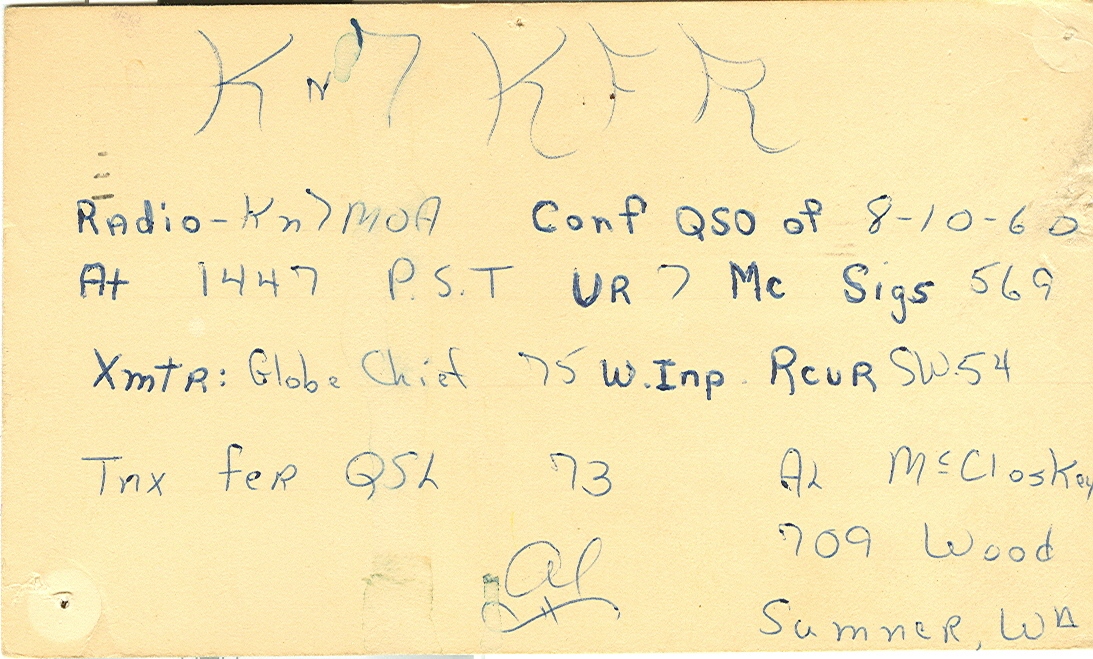 Kn7 KFR
Radio-Kn7MOA Conf QSO of 8-10-60
At 1447 P.S.T UR 7 Mc Sigs 569
XmtR: Globe Chief 75 W.Inp. RcvR SW.54
Tnx feR QSL 73 AL McCloskey
709 Wood
Al
SumneR, Wa